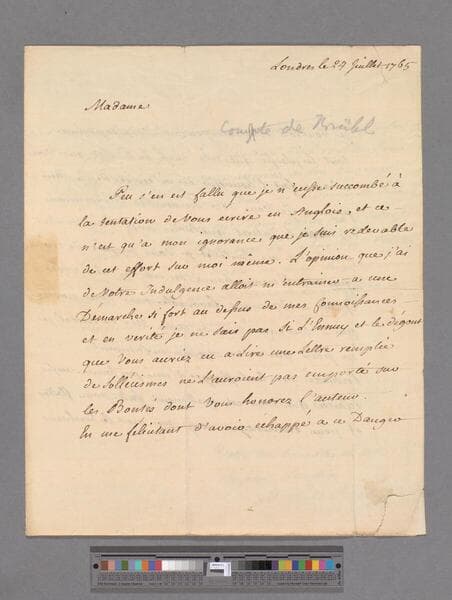 Londres le 24 Juillet 1765
Madame
Compte de Brühl
Peu s'en est fallu que je n'eusse succombé à
la tentation de Vous ecrire en Anglois, et ce
n'est qu'a mon ignorance que je suis redevable
de cet effort sur moi même. L'opinion que j'ai
de Votre Indulgence alloit m'entrainer a une
Démarche si fort au dessus de mes connoissances
et en verité je ne sais pas si L'Ennuy et le dégout
que Vous auriez eu a Lire une Lettre remplie
de Sollécismes ne L'auroient pas emporté sur
les Bontés dont Vous honorez l'auteur.
En me félicitant d'avoir echappé a ce Danger